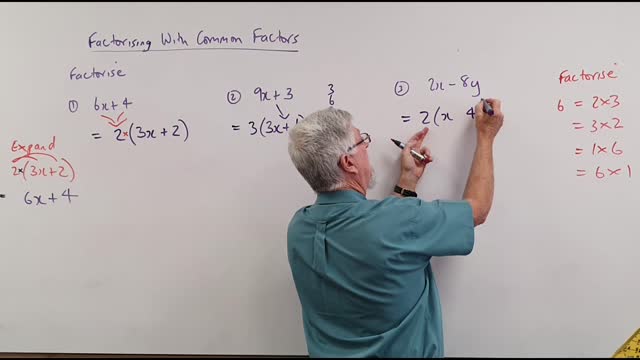 Factorising With Common Factors
Factorise
① 6x + 4
= 2×(3x + 2)
Expand
2×(3x + 2)
= 6x + 4
② 9x + 3
= 3(3x +
3
6
③ 2x − 8y
= 2(x 4
Factorise
6 = 2 × 3
= 3 × 2
= 1 × 6
= 6 × 1